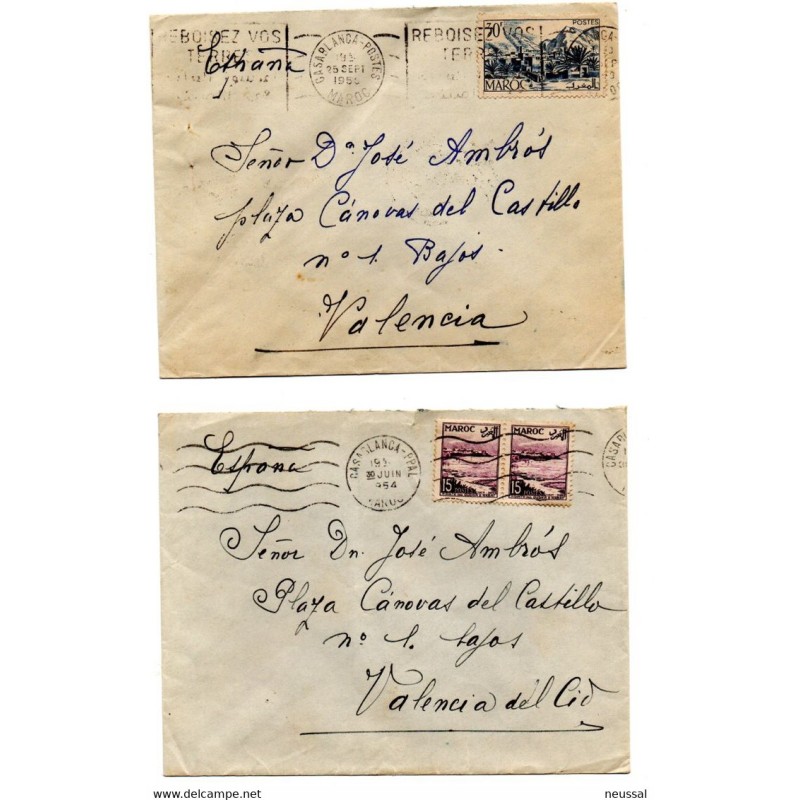 REBOISEZ VOS
TERRES
España
CASABLANCA-POSTES
25 SEPT
MAROC
REBOISEZ VOS
30F
POSTES
MAROC
المغرب
Señor Dn. José Ambrós
plaza Cánovas del Castillo
nº 1. Bajos.
Valencia
España
CASABLANCA-PPAL
30 JUIN
1954
MAROC
MAROC المغرب
15F
MAROC المغرب
15F
Señor Dn. José Ambrós
Plaza Cánovas del Castillo
nº 1. bajos
Valencia del Cid
www.delcampe.net
neussal